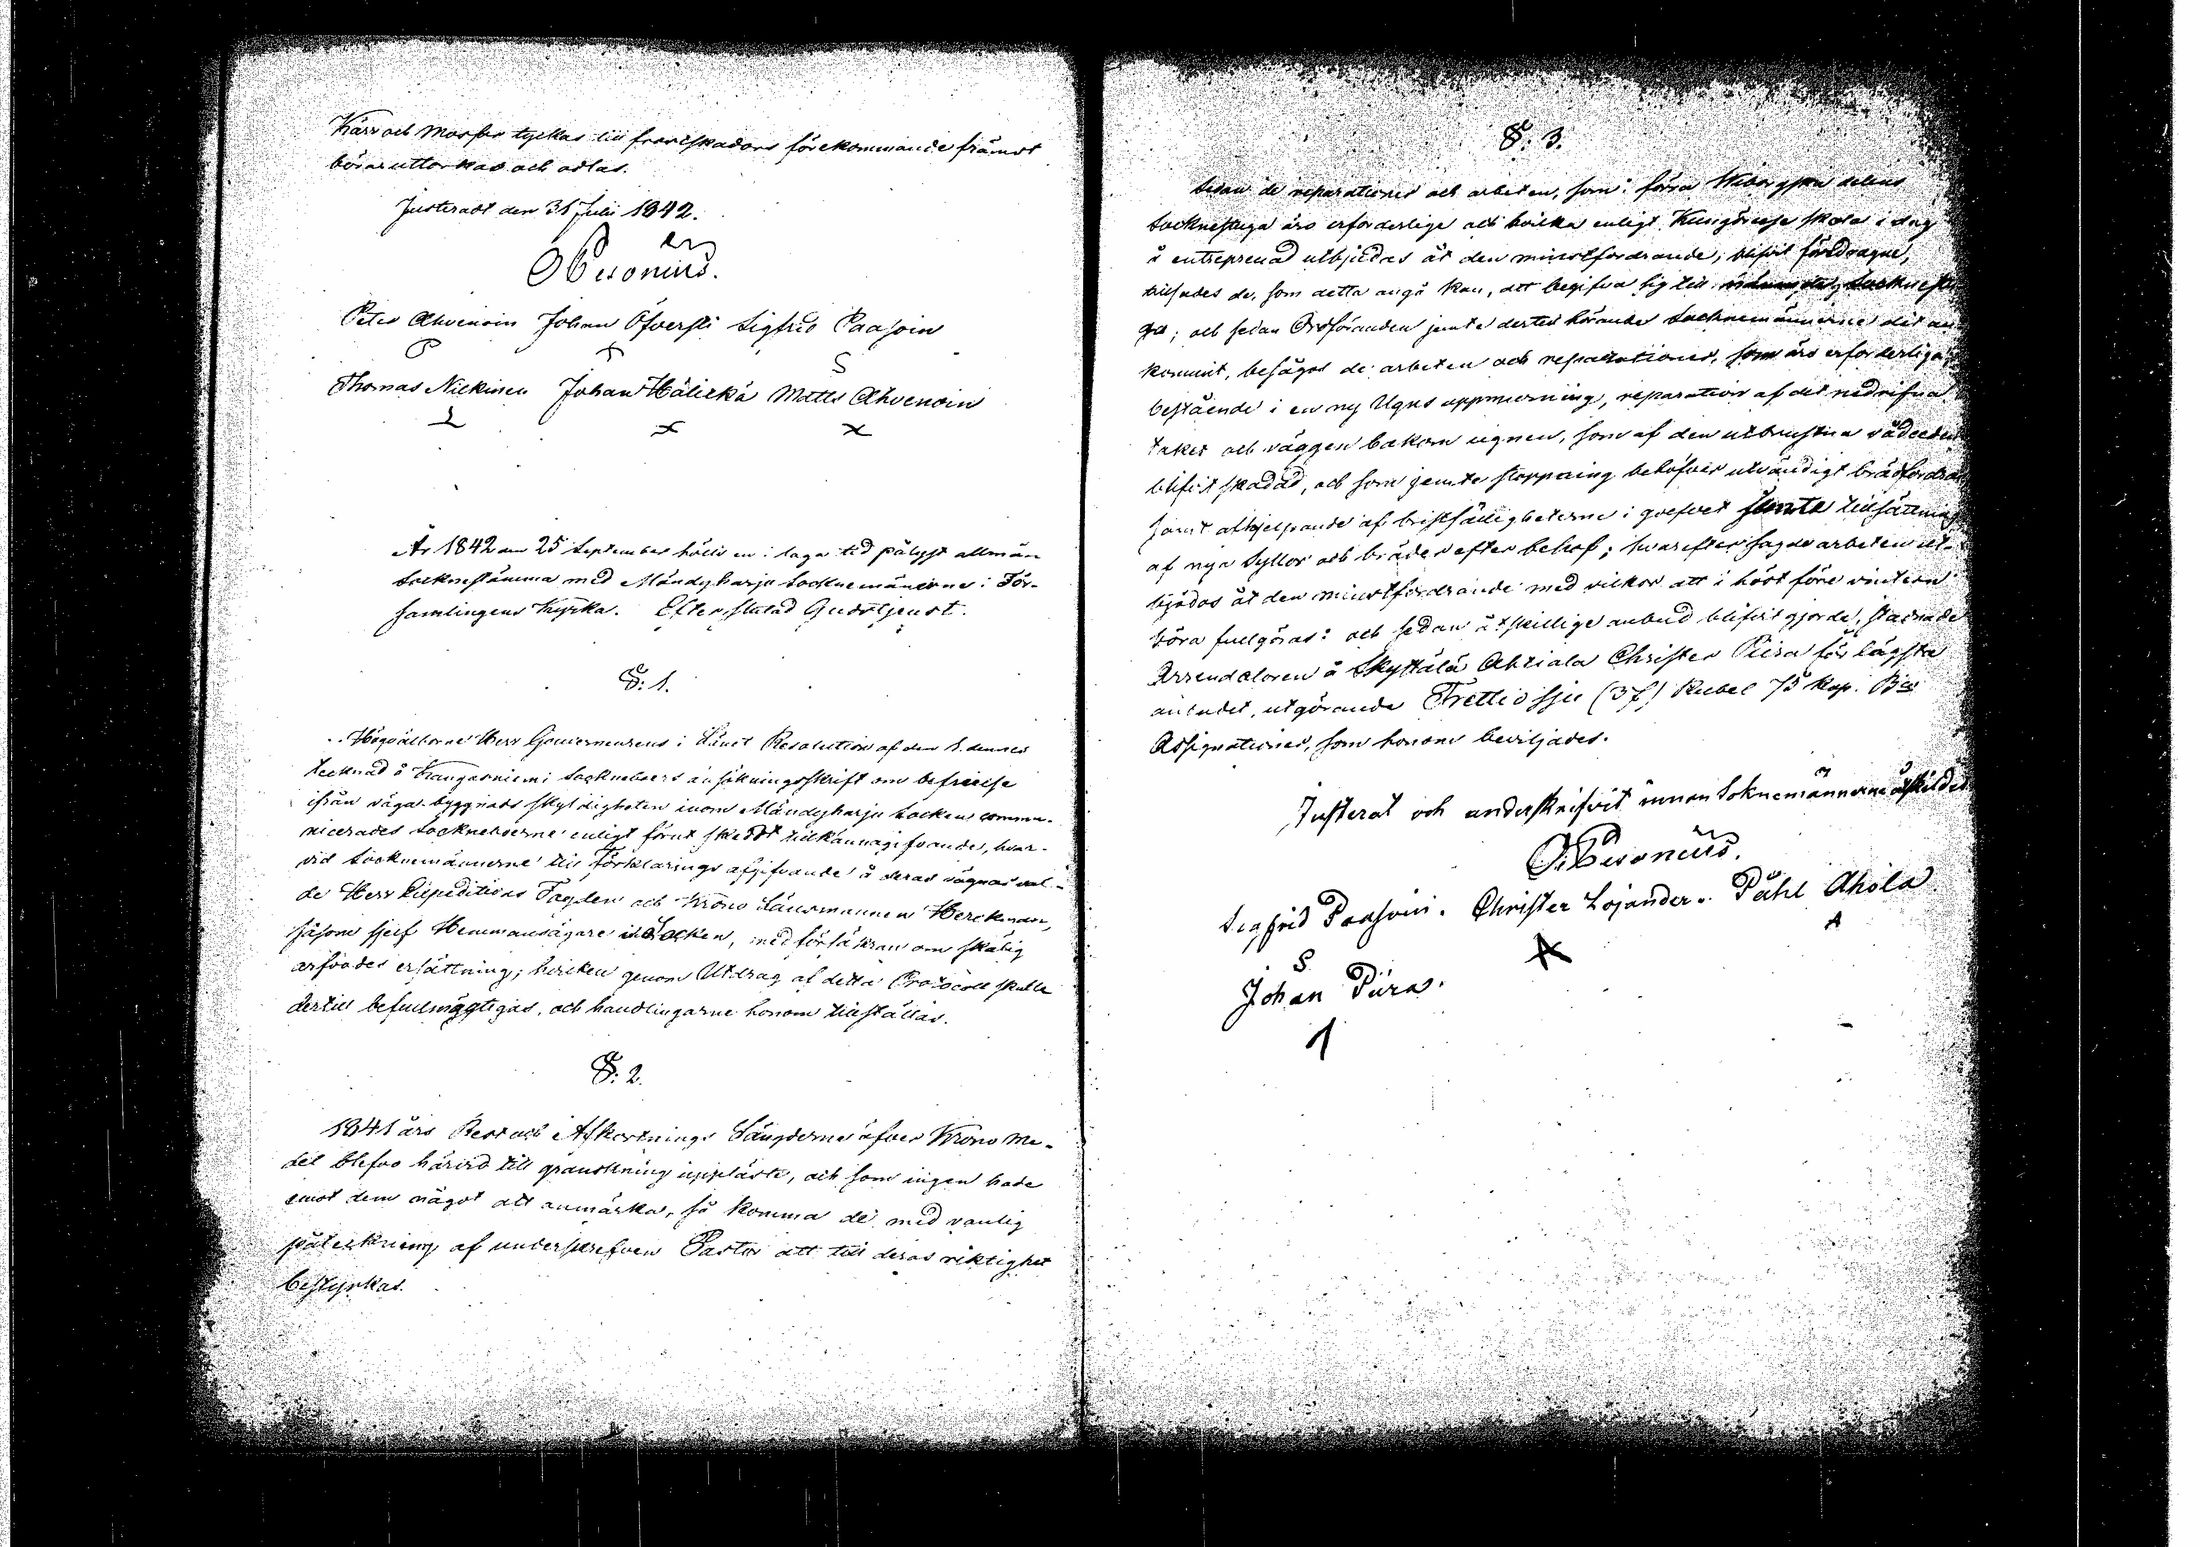 Kärr och Mossar tyckas till frostskadors förekommande främst
böra uttorkas och odlas.
Justeradt den 31 Julii 1842.
O Pesonius.
Peter Ahvenoin Johan Öfversti Sigfrid Paasoin
P S
Thomas Nickinen Johan Hälickä Matts Ahvenoin
x x
År 1842 den 25 September hölls en i laga tid pålyst allmän
Socknestämma med Mändyharju Socknemännerne i För-
samlingens Kyrka. Efter slutad Gudstjenst.
§: 1.
Högvälborne Herr Gouverneurens i Länet Resolution af den
tecknad å Kangasniemi Sockneboers ansökningsskrift om befrielse
ifrån vägabyggnads skyldigheten inom Mändyharju Socken commu-
nicerades Sockneboerne enligt förut skedt tillkännagifvande, hvar-
vid Socknemännerne till Förklarings afgifvande å deras vägnar val-
de Herr Expeditions Fogden och Krono Länsmannen Herckman,
såsom sjelf Hemmansägare i Socken, med försäkran om skälig
arfvodes ersättning; hvilken genom Utdrag af detta Protocoll skulle
dertill befullmägtigas, och handlingarne honom tillställas.
§: 2.
1841 års Rest och Afkortnings Längderne öfver Krono Me-
del blefvo härvid till granskning uppläste, och som ingen hade
emot dem något att anmärka, så komma de med vanlig
påteckning af underskrefven Pastor att till deras riktighet
bestyrkas.
§: 3.
Sedan de reparationer och arbeten, som i förra Wiborgska delens
Socknestuga äro erforderlige och hvilka enligt Kungörelse skola i dag
å entreprenad utbjudas åt den minstfordrande, blifvit föredragne,
tillsades de, som detta angå kan, att begifva sig till Socknestu
ga; och sedan Ordföranden jemte dertill hörande Socknemännerne dit an
kommit, besågos de arbeten och reparationer, som äro erforderliga,
bestående i en ny Ugns uppmurning, reparation af det nedrifna
taket och väggen bakom ugnen, som af den utbrustna vådelden
blifvit skadad, och som jemte stoppning behöfver utvändigt brädfodras
samt afhjelpande af bristfälligheterne i golfvet jemte tillsättning
af nya Syllor och bräder efter behof; hvarefter sagde arbeten ut-
bjödos åt den minstfordrande med vilkor att i höst före vintern
böra fullgöras: och sedan åtskillige anbud blifvit gjorde, stadnade
Arrendatoren å Skyttälä Ahtiala Christer Piira för lägsta
anbudet, utgörande Trettiosju (37) Rubel 75 Kop. Bco
Assignationer, som honom beviljades.
Justerat och underskrifvit innan Soknemännerne åtskildes
O. Pesonius.
Sigfrid Paasoin. Christer Lojander. Påhl Ahola
S A
Johan Piira.
1